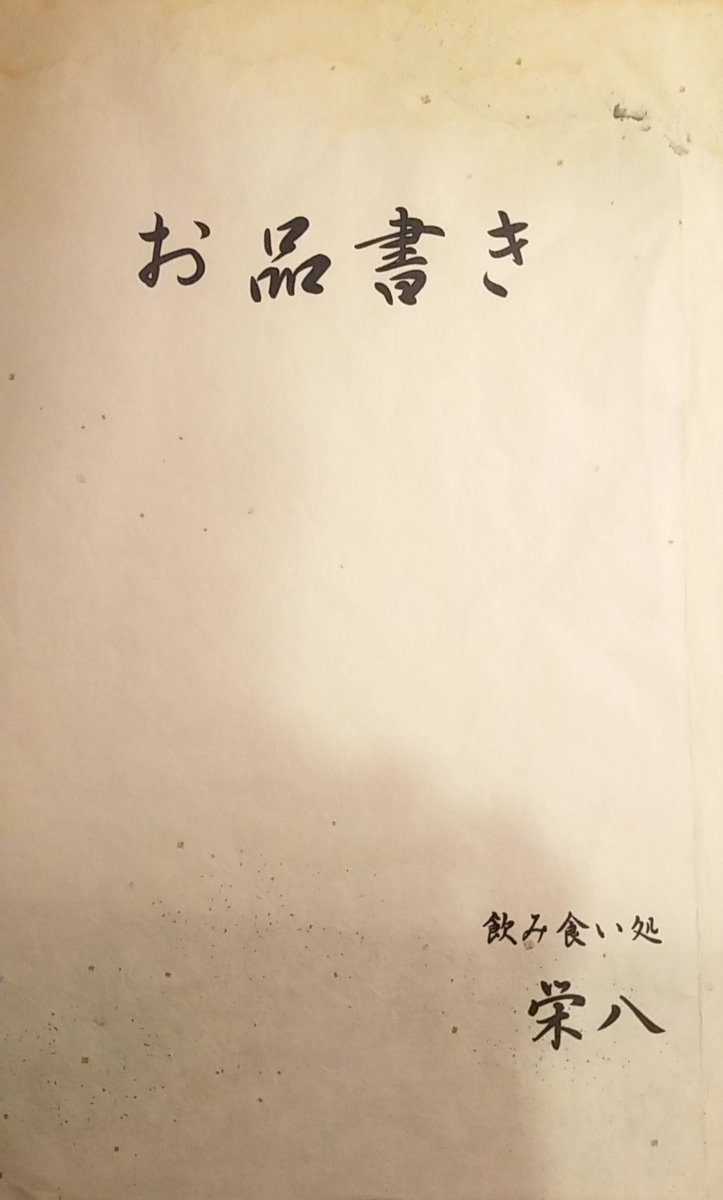 お品書き
飲み食い処
栄八